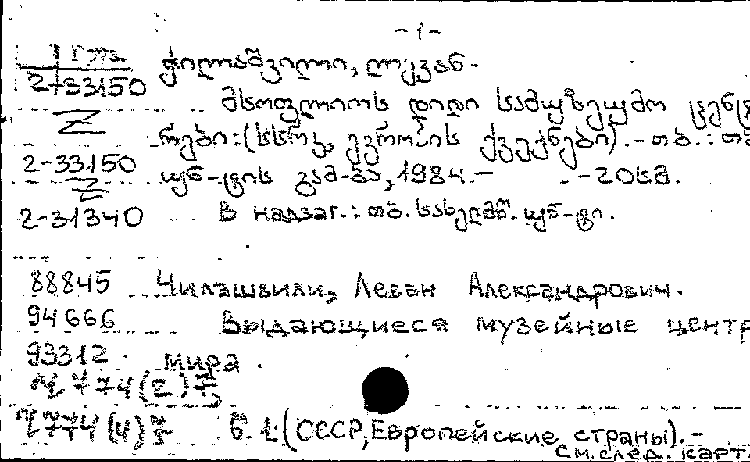 -1-
ჭილაშვილი, ლევან.
2-33150
მსოფლიოს დიდი სამუზეუმო ცენტ
რები: (სსრკ, ევროპის ქვეყნები). - თბ.: თბ
2-33150
უნ-ტის გამ-ბა, 1984. - - 20სმ.
2-31340 В надзаг.: თბ. სახელმწ. უნ-ტი.
88845 Чилашвили, Леван Александрович.
94666 Выдающиеся музейные центр
93312 мира
774(2)
774(4) Б. 1: (СССР, Европейские страны). -
см. след. карт.